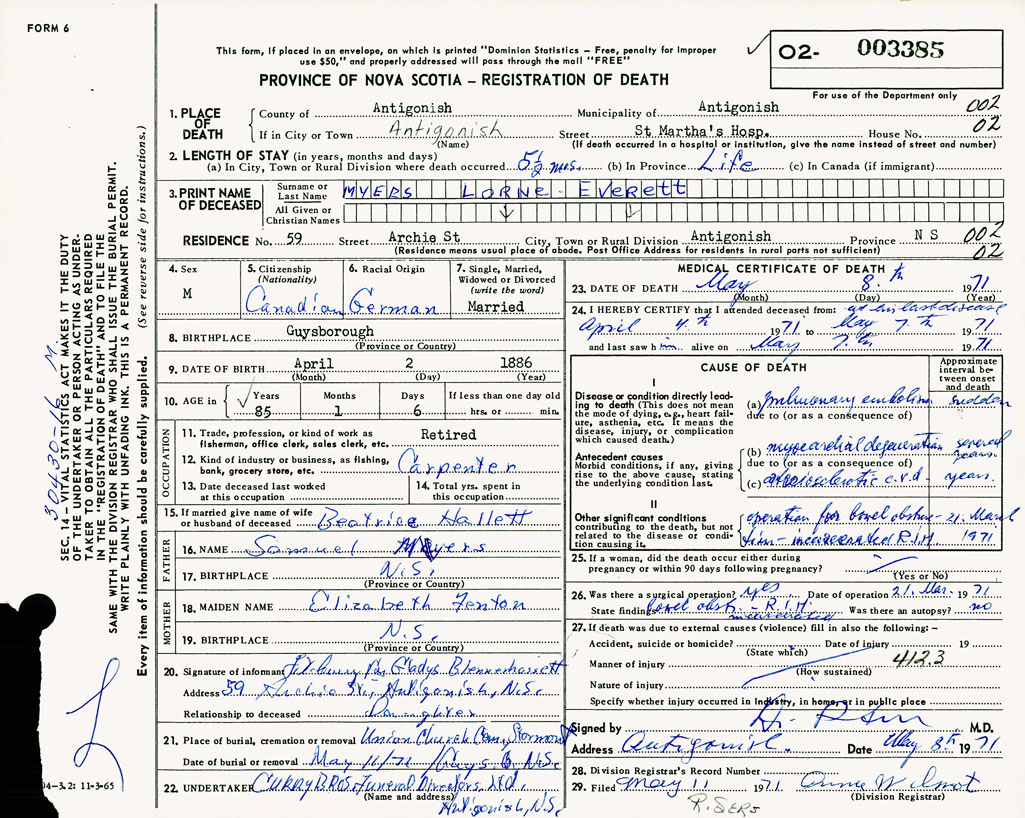 FORM 6
This form, if placed in an envelope, on which is printed "Dominion Statistics – Free, penalty for improper
use $50," and properly addressed will pass through the mail "FREE"
PROVINCE OF NOVA SCOTIA – REGISTRATION OF DEATH
02- 003385
For use of the Department only
002
02
1. PLACE OF DEATH
County of Antigonish Municipality of Antigonish
If in City or Town Antigonish Street St Martha's Hosp. House No.
(Name) (If death occurred in a hospital or institution, give the name instead of street and number)
2. LENGTH OF STAY (in years, months and days)
(a) In City, Town or Rural Division where death occurred 5½ mos. (b) In Province Life (c) In Canada (if immigrant)
3. PRINT NAME OF DECEASED
Surname or Last Name MYERS LORNE - Everett
All Given or Christian Names
RESIDENCE No. 59 Street Archie St City, Town or Rural Division Antigonish Province N S 002
(Residence means usual place of abode. Post Office Address for residents in rural parts not sufficient) 02
4. Sex
M
5. Citizenship
(Nationality)
Canadian
6. Racial Origin
German
7. Single, Married,
Widowed or Divorced
(write the word)
Married
8. BIRTHPLACE Guysborough
(Province or Country)
9. DATE OF BIRTH April 2 1886
(Month) (Day) (Year)
10. AGE in Years Months Days If less than one day old
85 1 6 hrs. or min.
OCCUPATION
11. Trade, profession, or kind of work as
fisherman, office clerk, sales clerk, etc. Retired
12. Kind of industry or business, as fishing,
bank, grocery store, etc. Carpenter
13. Date deceased last worked
at this occupation
14. Total yrs. spent in
this occupation
15. If married give name of wife
or husband of deceased Beatrice Hallett
FATHER
16. NAME Samuel Myers
17. BIRTHPLACE N.S.
(Province or Country)
MOTHER
18. MAIDEN NAME Elizabeth Fenton
19. BIRTHPLACE N.S.
(Province or Country)
20. Signature of informant Gladys Blennerhassett
Address 59 Archie St., Antigonish, N.S.
Relationship to deceased Daughter
21. Place of burial, cremation or removal Union Church Cem. Stormont
Date of burial or removal May 11/71 Guys. Co. N.S.
22. UNDERTAKER CURRY BROS. Funeral Directors Ltd.
(Name and address) Antigonish, N.S.
MEDICAL CERTIFICATE OF DEATH
23. DATE OF DEATH May 8.th 1971
(Month) (Day) (Year)
24. I HEREBY CERTIFY that I attended deceased from: at his last disease
April 4.th 1971 to May 7.th 1971
and last saw him alive on May 7.th 1971
CAUSE OF DEATH
Approximate interval between onset and death
I
Disease or condition directly leading to death (This does not mean the mode of dying, e.g., heart failure, asthenia, etc. It means the disease, injury, or complication which caused death.)
(a) pulmonary embolism sudden
due to (or as a consequence of)
Antecedent causes
Morbid conditions, if any, giving rise to the above cause, stating the underlying condition last.
(b) myocardial degeneration several years
due to (or as a consequence of)
(c) arteriosclerotic c.v.d. years.
II
Other significant conditions
contributing to the death, but not related to the disease or condition causing it.
operation for bowel obstruc- 21. March
tion - incarcerated R.I.H. 1971
25. If a woman, did the death occur either during
pregnancy or within 90 days following pregnancy?
(Yes or No)
26. Was there a surgical operation? yes Date of operation 21. Mar. 1971
State findings bowel obstr. - R.I.H. incarcerated Was there an autopsy? no
27. If death was due to external causes (violence) fill in also the following: –
Accident, suicide or homicide? Date of injury 19
(State which)
Manner of injury 412.3
(How sustained)
Nature of injury
Specify whether injury occurred in Industry, in home, or in public place
Signed by M.D.
Address Antigonish. Date May 8th 1971
28. Division Registrar's Record Number
29. Filed May 11 1971 Anne Wilmot
(Division Registrar)
SEC. 14 – VITAL STATISTICS ACT MAKES IT THE DUTY
OF THE UNDERTAKER OR PERSON ACTING AS UNDER-
TAKER TO OBTAIN ALL THE PARTICULARS REQUIRED
IN THE "REGISTRATION OF DEATH" AND TO FILE THE
SAME WITH THE DIVISION REGISTRAR WHO SHALL ISSUE THE BURIAL PERMIT.
WRITE PLAINLY WITH UNFADING INK. THIS IS A PERMANENT RECORD.
Every item of information should be carefully supplied. (See reverse side for instructions.)
30430-16 M
04-3.2: 11-3-65